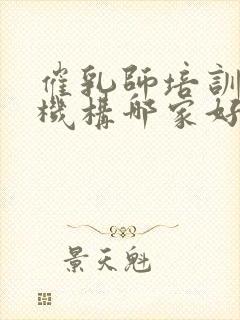 催乳師培訓
機構哪家好
景天魁